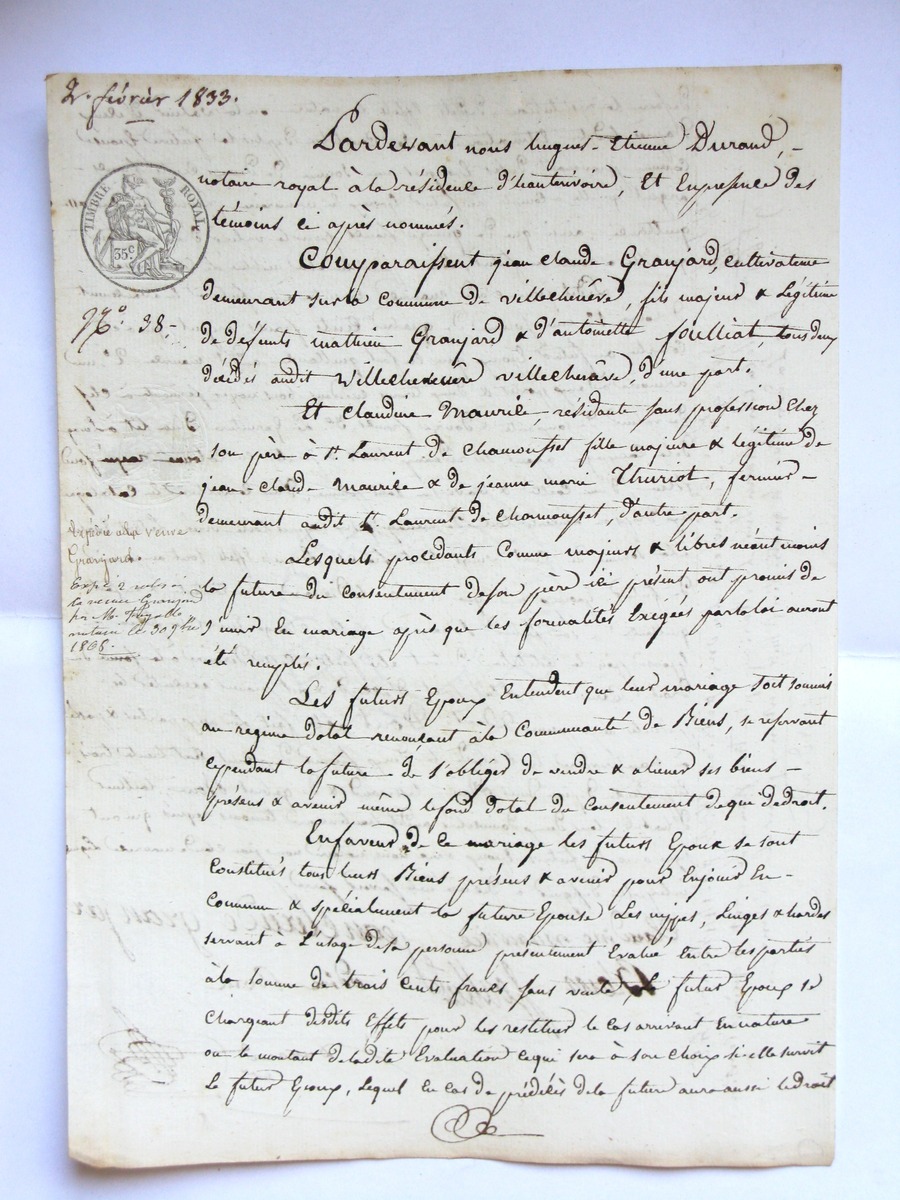 2. février 1833.
Pardevant nous hugues-Etienne Durand, -
notaire royal à la résidence d'hauterivoire, Et En présence des
témoins ci après nommés.
TIMBRE ROYAL
35c
Comparaissent jean claude Granjard, cultivateur
demeurant sur la commune de villechenève, fils majeur & légitime
No. 38 -
de défunts mathieu Granjard & d'antoinette foulliat, tous deux
décédés audit villechenève, d'une part.
Et claudine Maurice, résidante sans profession chez
son père à st. Laurent de chamousset fille majeure & légitime de
jean-claude Maurice & de jeanne marie Thuriot, fermier -
demeurant audit st. Laurent de chamousset, d'autre part.
veuve
Granjard.
Lesquels procédants comme majeurs & libres néant moins
la future du consentement de son père ici présent, ont promis de
Exp. 2 roles à
la veuve Granjard
par Me.
notaire le 30 9bre
1868.
s'unir En mariage après que les formalités Exigées par la loi auront
été remplis.
Les futurs Epoux Entendent que leur mariage soit soumis
au régime dotal renonçant à la Communauté de Biens, se réservant
cependant la future de s'obliger de vendre & aliener ses biens -
présens & avenir même le fond dotal du consentement de qui de droit.
En faveur de ce mariage les futurs Epoux se sont
Constitués tous leurs Biens présens & avenir pour En jouir En -
Commun & spécialement la future Epouse Les nippes, Linges & hardes
servant à L'usage de sa personne présentement Evalué Entre les parties
à la somme de trois cents francs sans vente, Le futur Epoux se
chargeant desdits Effets pour les restituer le cas arrivant En nature
ou le montant de ladite Evaluation ce qui sera à son choix si elle survit
Le futur Epoux, Lequel En cas de prédécès de la future aura aussi le droit